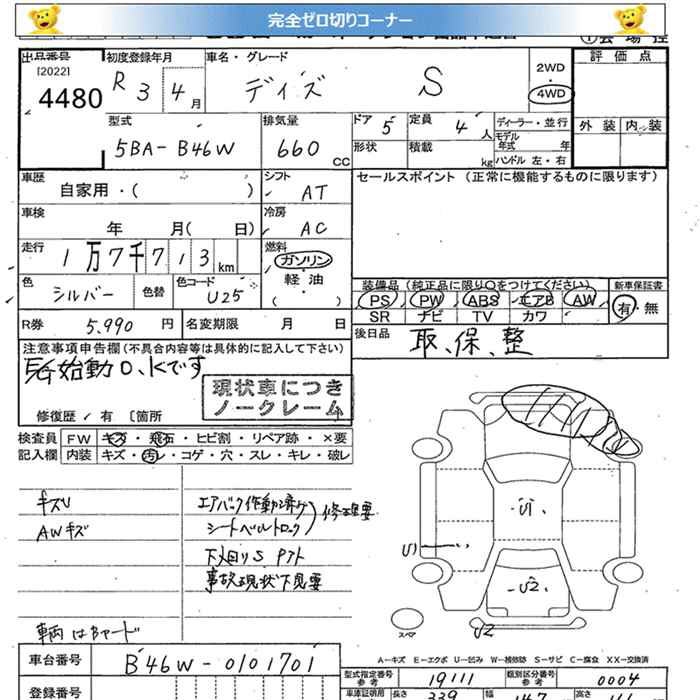 完全ゼロ切りコーナー
出品番号
[2022]
4480
初度登録年月
R 3 4月
車名・グレード
デイズ S
2WD
4WD
評価点
外装 内装
型式
5BA-B46W
排気量
660 cc
ドア 5
定員 4 人
ディーラー・並行
形状
積載 kg
モデル年式 年
ハンドル 左・右
車歴
自家用・( )
シフト
AT
セールスポイント (正常に機能するものに限ります)
車検
年 月( 日)
冷房
AC
走行
1万7千713km
燃料
ガソリン
軽油
( ・ )
色
シルバー
色替
色コード
U25
装備品 (純正品に限り○をつけてください)
PS PW ABS エアB AW
SR ナビ TV カワ
新車保証書
有・無
R券 5.990 円
名変期限 月 日
後日品
取、保、整
注意事項申告欄 (不具合内容等は具体的に記入して下さい)
始動O、Kです
現状車につき
ノークレーム
修復歴 有 〔箇所
検査員
記入欄
FW キズ・飛石・ヒビ割・リペア跡・×要
内装 キズ・汚レ・コゲ・穴・スレ・キレ・破レ
キズU
AWキズ
エアバック作動済ケ
シートベルトロック
修理要
下回りS
事故現状下見要
車両はBヤード
U1
U1
U2
U2
スペア
A-キズ E-エクボ U-凹み W-補修跡 S-サビ C-腐食 XX-交換済
車台番号
B46W-0101701
登録番号
型式指定番号
参考
19111
類別区分番号
参考
0004
車庫証明用
長さ 339
幅 147
高さ